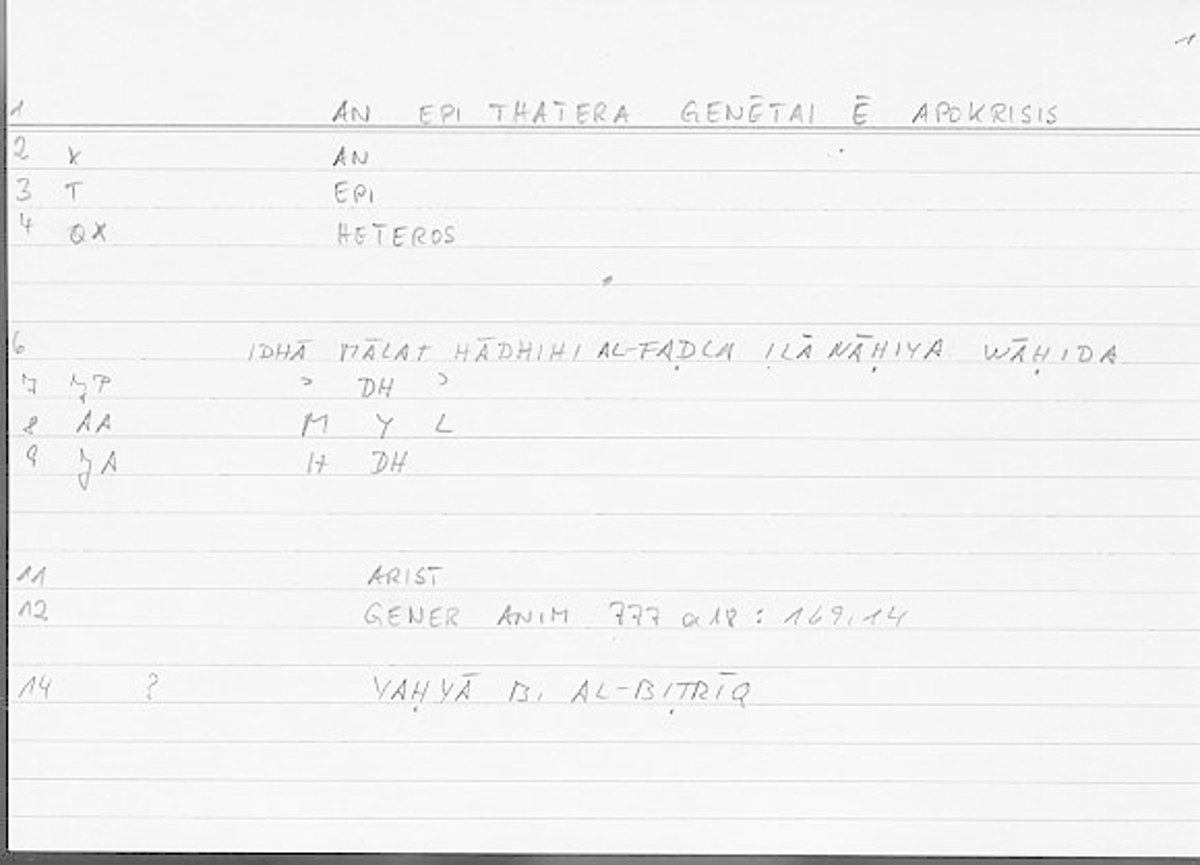 1
1 AN EPI THATERA GENĒTAI Ē APOKRISIS
2 X AN
3 T EPI
4 QX HETEROS
6 IDHĀ MĀLAT HĀDHIHI AL-FAḌLA ILĀ NĀḤIYA WĀḤIDA
7 ʒP ʾ DH ʾ
8 AA M Y L
9 ʒA H DH
11 ARIST
12 GENER ANIM 777 a 18 : 169,14
14 ? YAḤYĀ B. AL-BIṬRĪQ